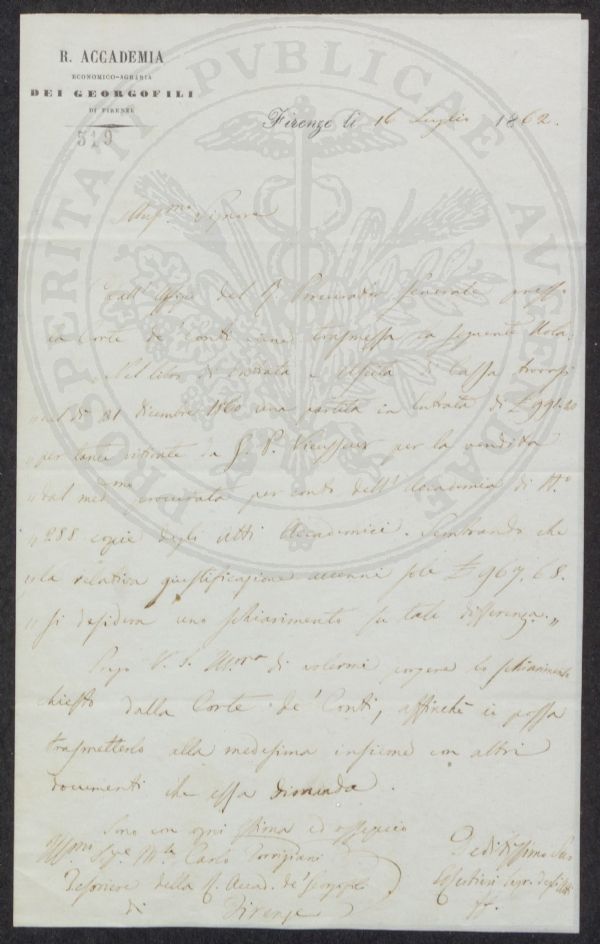 R. ACCADEMIA
ECONOMICO-AGRARIA
DEI GEORGOFILI
DI FIRENZE
519
Firenze li 16 Luglio 1862.
PROSPERITATI PVBLICAE AVGENDAE
Signore
Dall' Uffizio del R. Procurator Generale presso
la Corte de' Conti viene trasmessa la seguente Nota.
Nel libro di Entrata e Uscita di Cassa trovasi
" nel dì 21 dicembre 1860 una partita in Entrata di £ 991.20
" per tante ritirate da G. P. Vieusseux per la vendita
" dal medmo procurata per conto dell' Accademia di No
" 288 copie degli Atti Accademici. Sembrando che
" la relativa giustificazione accenni sole £ 967.68.
" si desidera uno schiarimento su tale differenza. "
Prego V. S. di volermi porgere lo schiarimento
chiesto dalla Corte de' Conti, affinchè io possa
trasmetterlo alla medesima insieme con altri
documenti che essa dimanda.
Sono con ogni stima ed ossequio
Carlo Torrigiani
Tesoriere della R. Accad. de' Georgofili
di Firenze